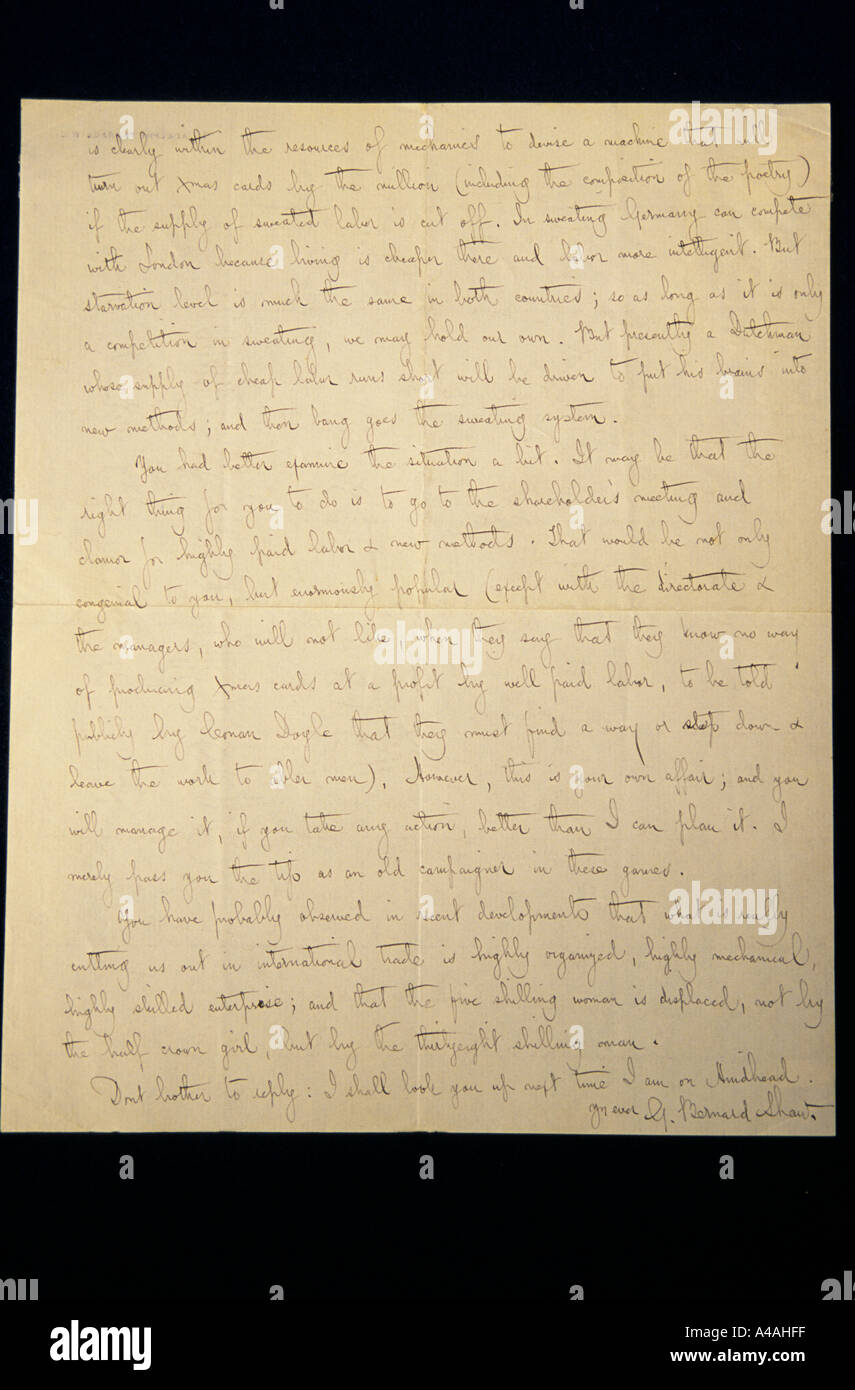 is clearly within the resources of mechanics to devise a machine that will
turn out Xmas cards by the million (including the composition of the poetry)
if the supply of sweated labor is cut off. In sweating Germany can compete
with London because living is cheaper there and labor more intelligent. But
starvation level is much the same in both countries; so as long as it is only
a competition in sweating, we may hold our own. But presently a Dutchman
whose supply of cheap labor runs short will be driven to put his brains into
new methods; and then bang goes the sweating system.
You had better examine the situation a bit. It may be that the
right thing for you to do is to go to the shareholder's meeting and
clamor for highly paid labor & new methods. That would be not only
congenial to you, but enormously popular (except with the directorate &
the managers, who will not like, when they say that they know no way
of producing Xmas cards at a profit by well paid labor, to be told
publicly by Conan Doyle that they must find a way or step down &
leave the work to abler men). However, this is your own affair; and you
will manage it, if you take any action, better than I can plan it. I
merely pass you the tip as an old campaigner in these games.
You have probably observed in recent developments that what is really
cutting us out in international trade is highly organized, highly mechanical,
highly skilled enterprise; and that the five shilling woman is displaced, not by
the half crown girl, but by the thirtyeight shilling man.
Dont bother to reply: I shall look you up next time I am on Hindhead.
yrs ever G. Bernard Shaw.
alamy
alamy
alamy
alamy
alamy
alamy
A4AHFF
www.alamy.com